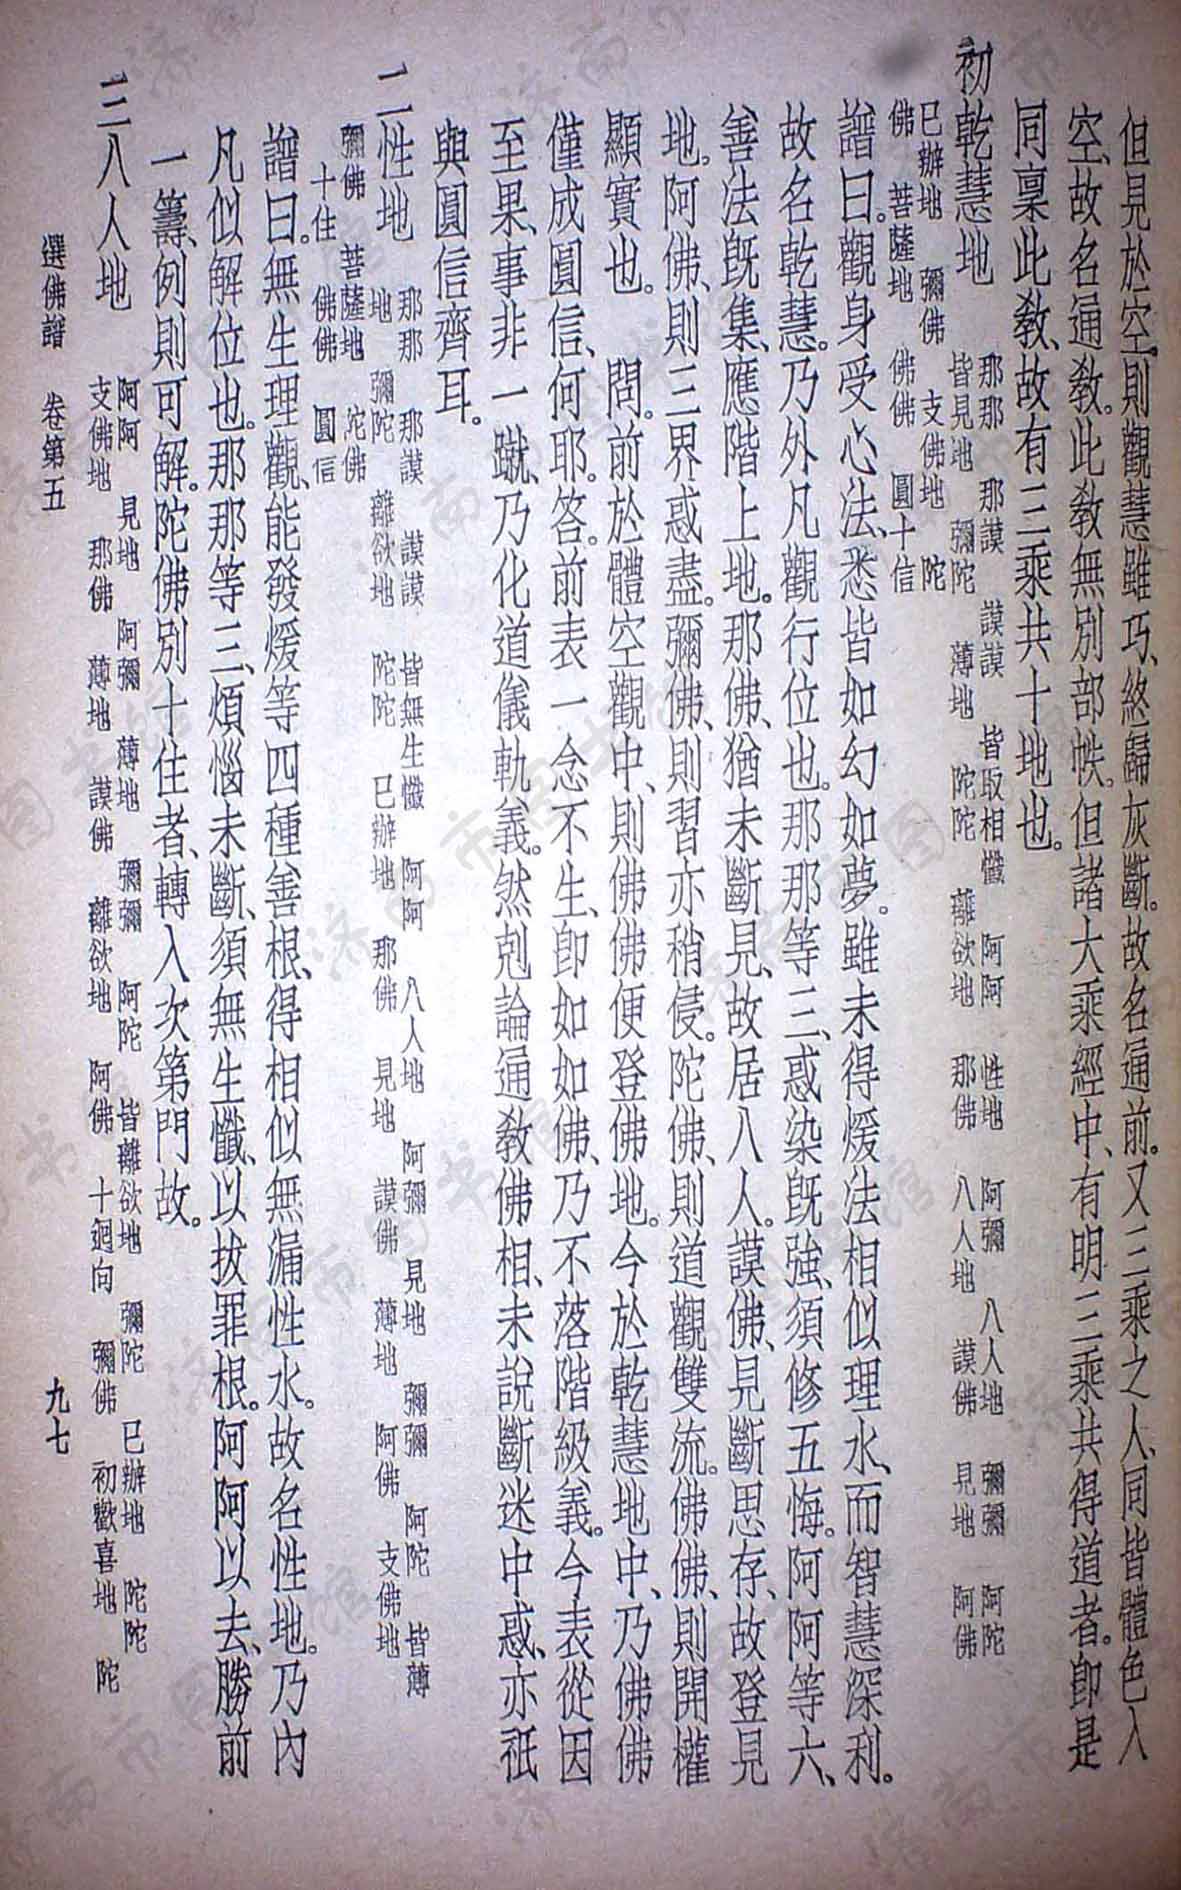 但見於空。則觀慧雖巧、終歸灰斷。故名通前。又三乘之人、同皆體色入
空、故名通教。此教無別部帙。但諸大乘經中、有明三乘共得道者。卽是
同稟此教、故有三乘共十地也。
初乾慧地
那那 那謨 謨謨 皆取相懺 阿阿 性地 阿彌 八人地 彌彌 阿陀
皆見地 彌陀 薄地 陀陀 離欲地 那佛 八人地 謨佛 見地 阿佛
已辦地 彌佛 支佛地 陀
佛 菩薩地 佛佛 圓十信
譜曰。觀身受心法、悉皆如幻如夢。雖未得煖法相似理水、而智慧深利。
故名乾慧。乃外凡觀行位也。那那等三、惑染旣強、須修五悔。阿阿等六、
善法旣集、應階上地。那佛、猶未斷見、故居八人。謨佛、見斷思存、故登見
地。阿佛、則三界惑盡。彌佛、則習亦稍侵。陀佛、則道觀雙流。佛佛、則開權
顯實也。 問。前於體空觀中、則佛佛便登佛地。今於乾慧地中、乃佛佛
僅成圓信、何耶。答。前表一念不生、卽如如佛、乃不落階級義。今表從因
至果、事非一蹴、乃化道儀軌義。然剋論通教佛相、未說斷迷中惑、亦祇
與圓信齊耳。
二性地
那那 那謨 謨謨 皆無生懺 阿阿 八人地 阿彌 見地 彌彌 阿陀 皆薄
地 彌陀 離欲地 陀陀 已辦地 那佛 見地 謨佛 薄地 阿佛 支佛地
彌佛 菩薩地 陀佛
十住 佛佛 圓信
譜曰。無生理觀、能發煖等四種善根、得相似無漏性水。故名性地。乃內
凡似解位也。那那等三、煩惱未斷、須無生懺、以拔罪根。阿阿以去、勝前
一籌、例則可解。陀佛別十住者、轉入次第門故。
三八人地
阿阿 見地 阿彌 薄地 彌彌 阿陀 皆離欲地 彌陀 已辦地 陀陀
支佛地 那佛 薄地 謨佛 離欲地 阿佛 十迴向 彌佛 初歡喜地 陀
選佛譜 卷第五 九七